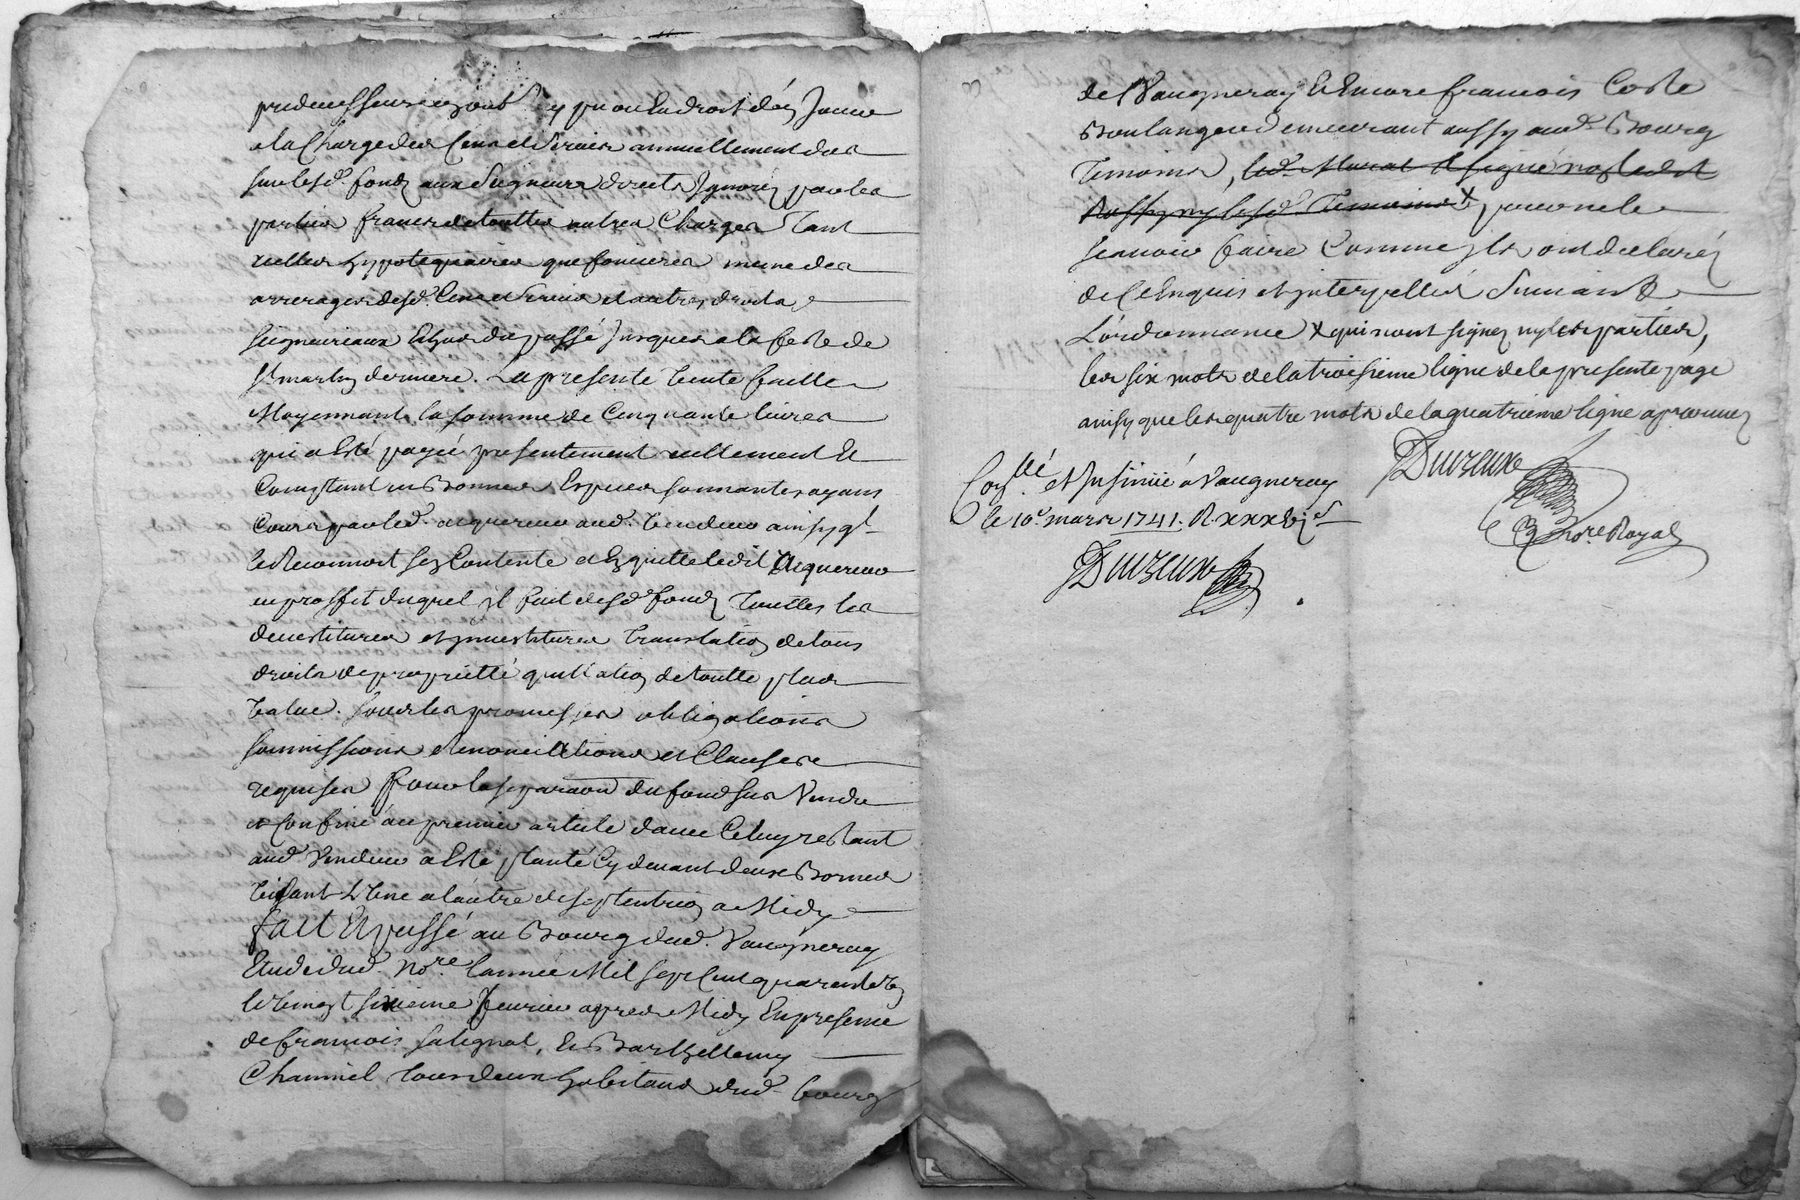 predecesseurs en ont eu ou en droit d'en Jouir
a la Charge des Cens et Servis annuellement dus
sur lesd. fondz aux Seigneurs directs Ignorez par les
parties francs de touttes autres Charges Tant
reelles hypotequaires que foncieres meme des
arrerages desd. Cens et Servis et autres droits
seigneuriaux Echus du passé Jusques a la feste de
St martin derniere. La presente Vente faitte
Moyennant la somme de Cinquante livres
qui a Esté payée presentement reellement Et
Comptant en Bonnes Especes sonnantes ayans
Cours par led. aquereur aud. Vendeur ainsy q'l
le Reconnoit s'en Contente et En quitte ledit Aquereur
au proffit duquel il fait desd. fondz Touttes les
devestitures et investitures translation de tous
droits de proprietté quittation de toutte plus
Value. sous les promesses obligations
soumissions renonciations et Clauses
requises Pour la separaon du fond sus Vendu
et Confiné au premier article d'avec Celuy restant
aud. Vendeur a Esté planté Cy devant deux Bornes
Visant L'Une a l'autre de septentrion a Midy
fait Et passé au Bourg dud. Vaugneray
Etude dud. Nore. l'année Mil sept Cent quarente Un
le Vingt sixieme fevrier apres Midy En presence
de francois Salignat, Et Barthellemy
Chanuel tous deux habitans dud. bourg
de Vaugneray Et Encore francois Coste
Boulanger demeurant aussy aud. Bourg
Temoins, led. Murat A signé non ledit
ny lesd. Temoins x, pour ne le
scavoir faire Comme ils ont declarés
de Ce Enquis et interpellés Suivant
L'ordonnance x qui n'ont signez ny les parties,
les six mots de la troisieme ligne de la presente page
ainsy que les quatre mots de la quatrieme ligne aprouvez
Duvzeux
Nore. Royal
Conllé et Insinüé a Vaugneray
le 10e. mars 1741. R. xxx
Duvzeux